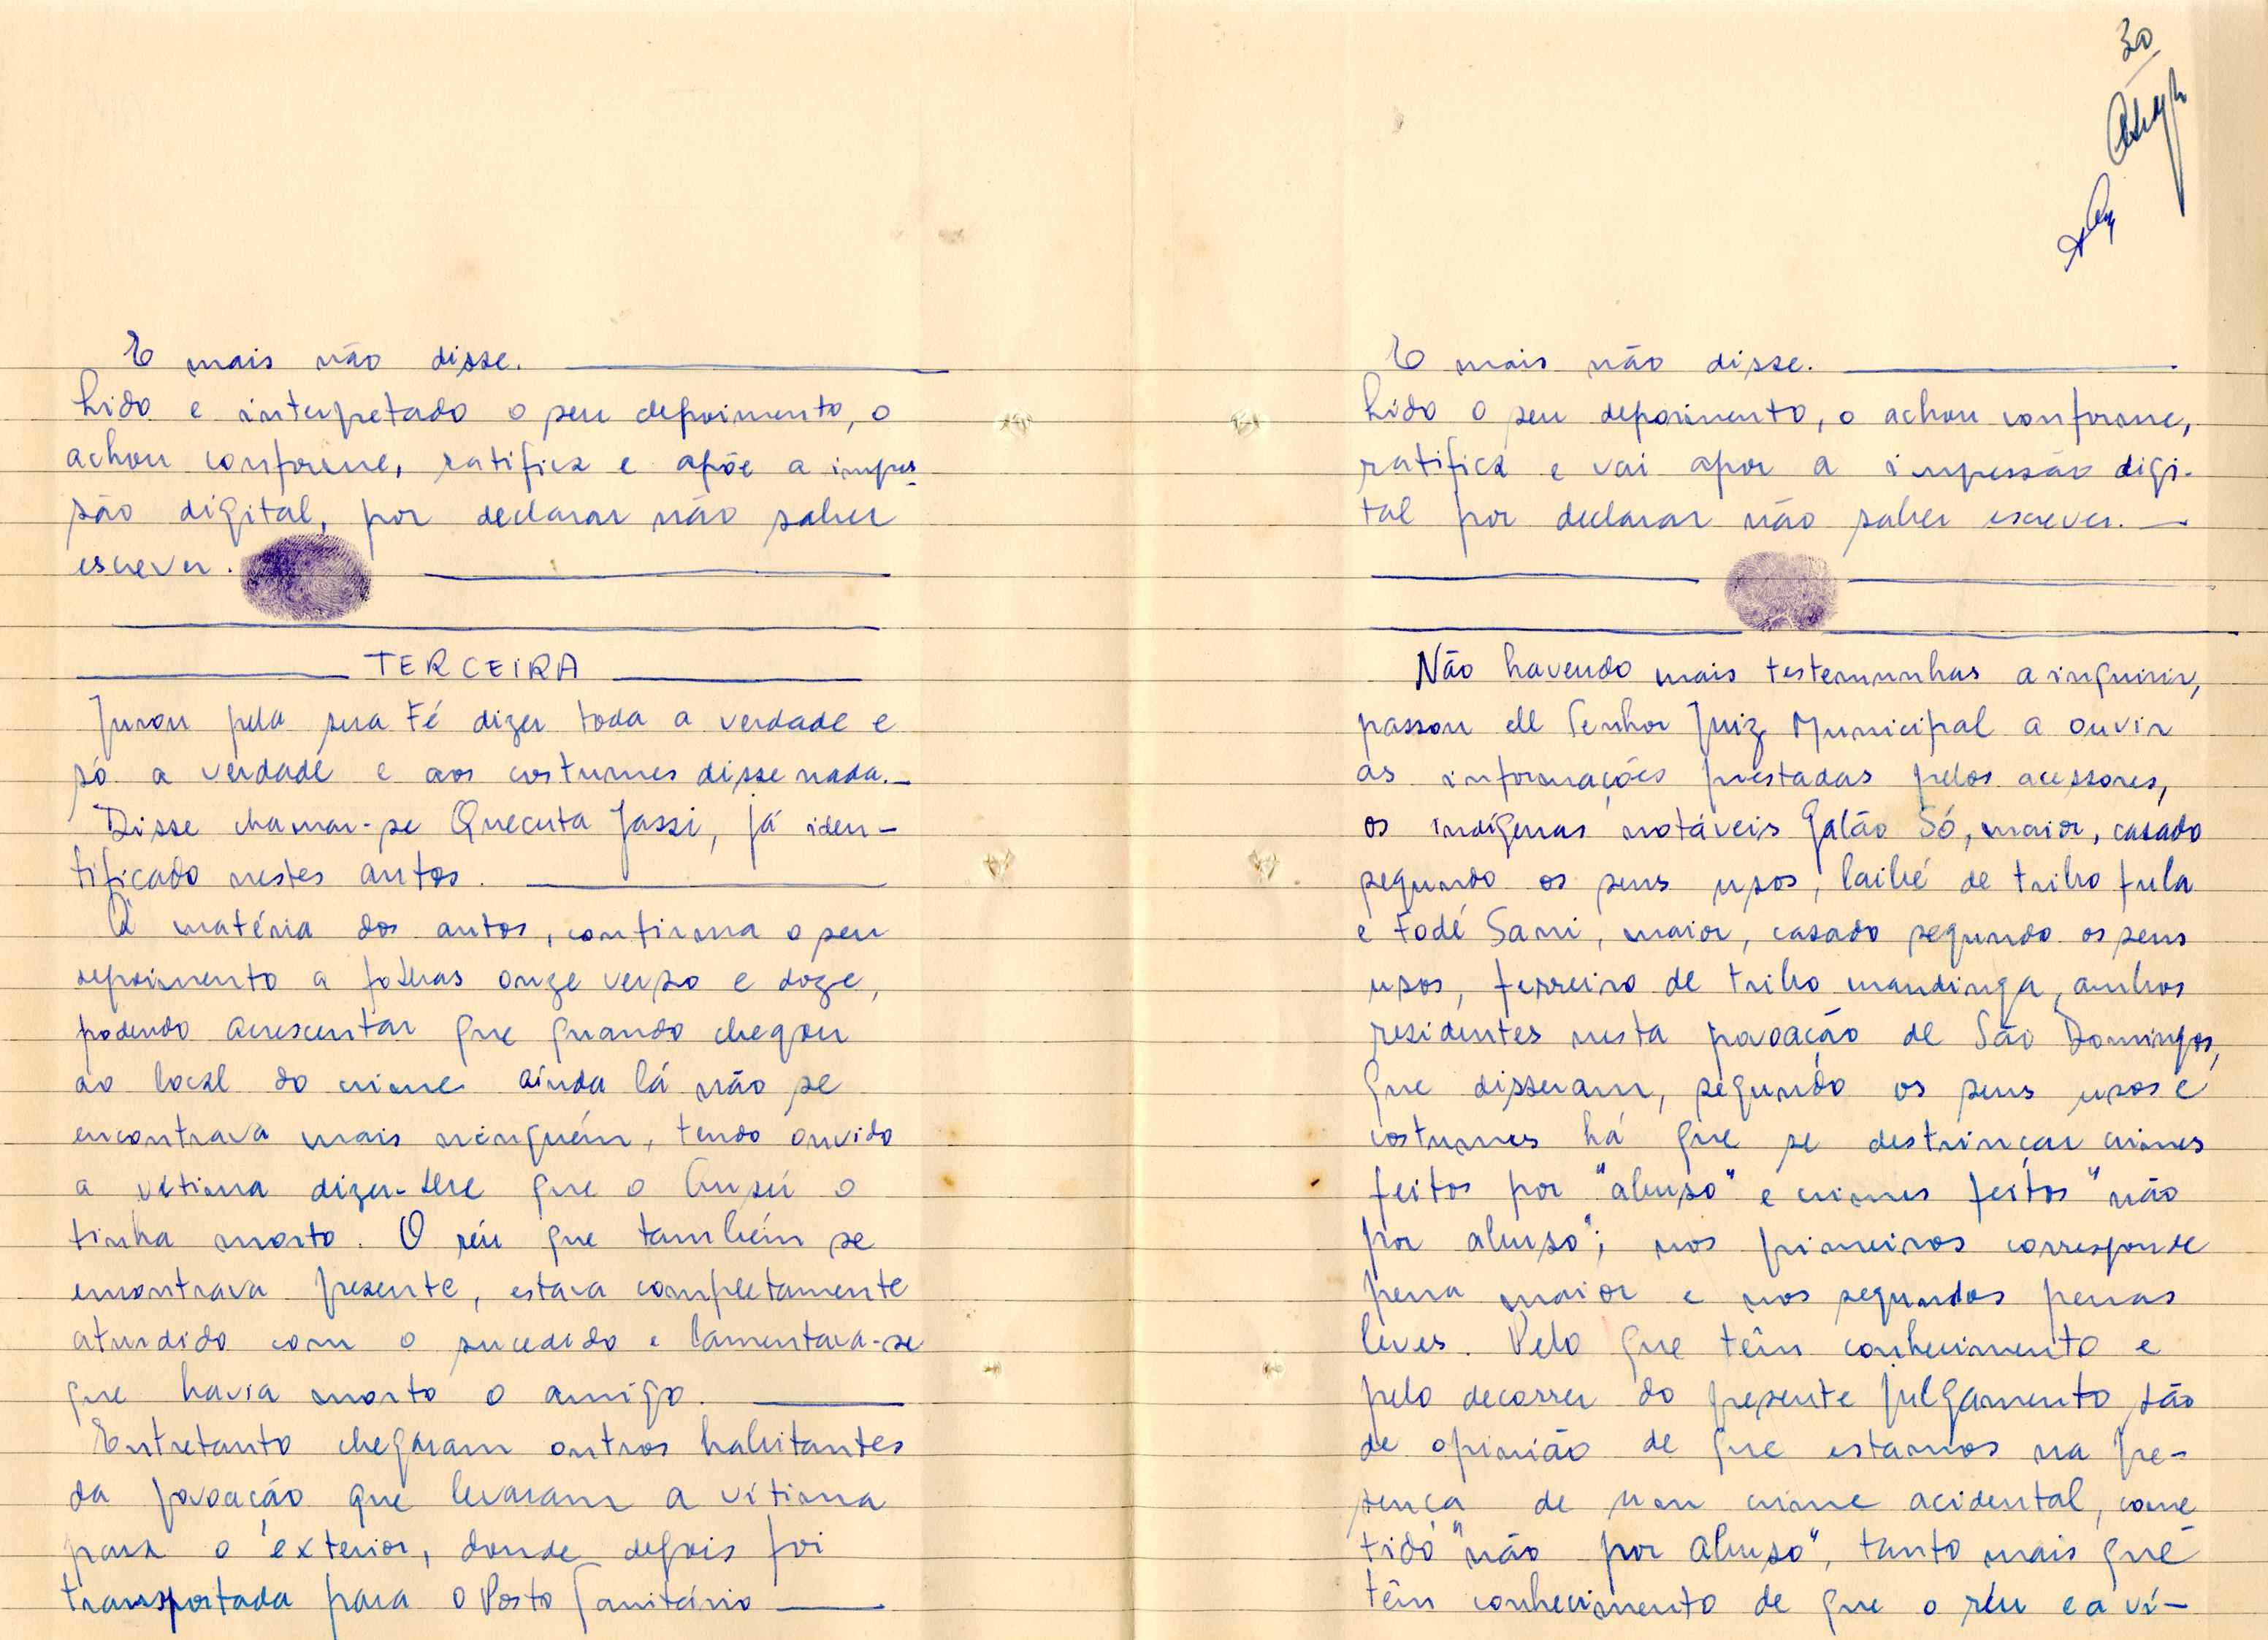 E mais não disse.
Lido e interpretado o seu depoimento, o
achou conforme, ratifica e apõe a impres
são digital, por declarar não saber
escrever.
TERCEIRA
Jurou pela sua Fé dizer toda a verdade e
só a verdade e aos costumes disse nada.
Disse chamar-se Quecuta Jassi, já iden-
tificado nestes autos.
À matéria dos autos, confirma o seu
depoimento a folhas onze verso e doze,
podendo acrescentar que quando chegou
ao local do crime ainda lá não se
encontrava mais ninguém, tendo ouvido
a vítima dizer-lhe que o Cussú o
tinha morto. O réu que também se
encontrava presente, estava completamente
aturdido com o sucedido e lamentava-se
que havia morto o amigo.
Entretanto chegaram outros habitantes
da povoação que levaram a vítima
para o exterior, donde depois foi
transportada para o Posto Sanitário
30
E mais não disse.
Lido o seu depoimento, o achou conforme,
ratifica e vai apor a impressão digi-
tal por declarar não saber escrever.
Não havendo mais testemunhas a inquirir,
passou ele Senhor Juiz Municipal a ouvir
as informações prestadas pelos acessores,
os indígenas notáveis Galão Só, maior, casado
segundo os seus usos, laibé de tribo fula
e Fodé Sani, maior, casado segundo os seus
usos, ferreiro de tribo mandinga, ambos
residentes nesta povoação de São Domingos,
que disseram, segundo os seus usos e
costumes há que se destrinçar crimes
feitos por "abuso" e crimes feitos "não
por abuso"; nos primeiros corresponde
pena maior e nos segundos penas
leves. Pelo que têm conhecimento e
pelo decorrer do presente julgamento são
de opinião de que estamos na pre-
sença de um crime acidental, come
tido "não por abuso", tanto mais que
têm conhecimento de que o réu e a ví-